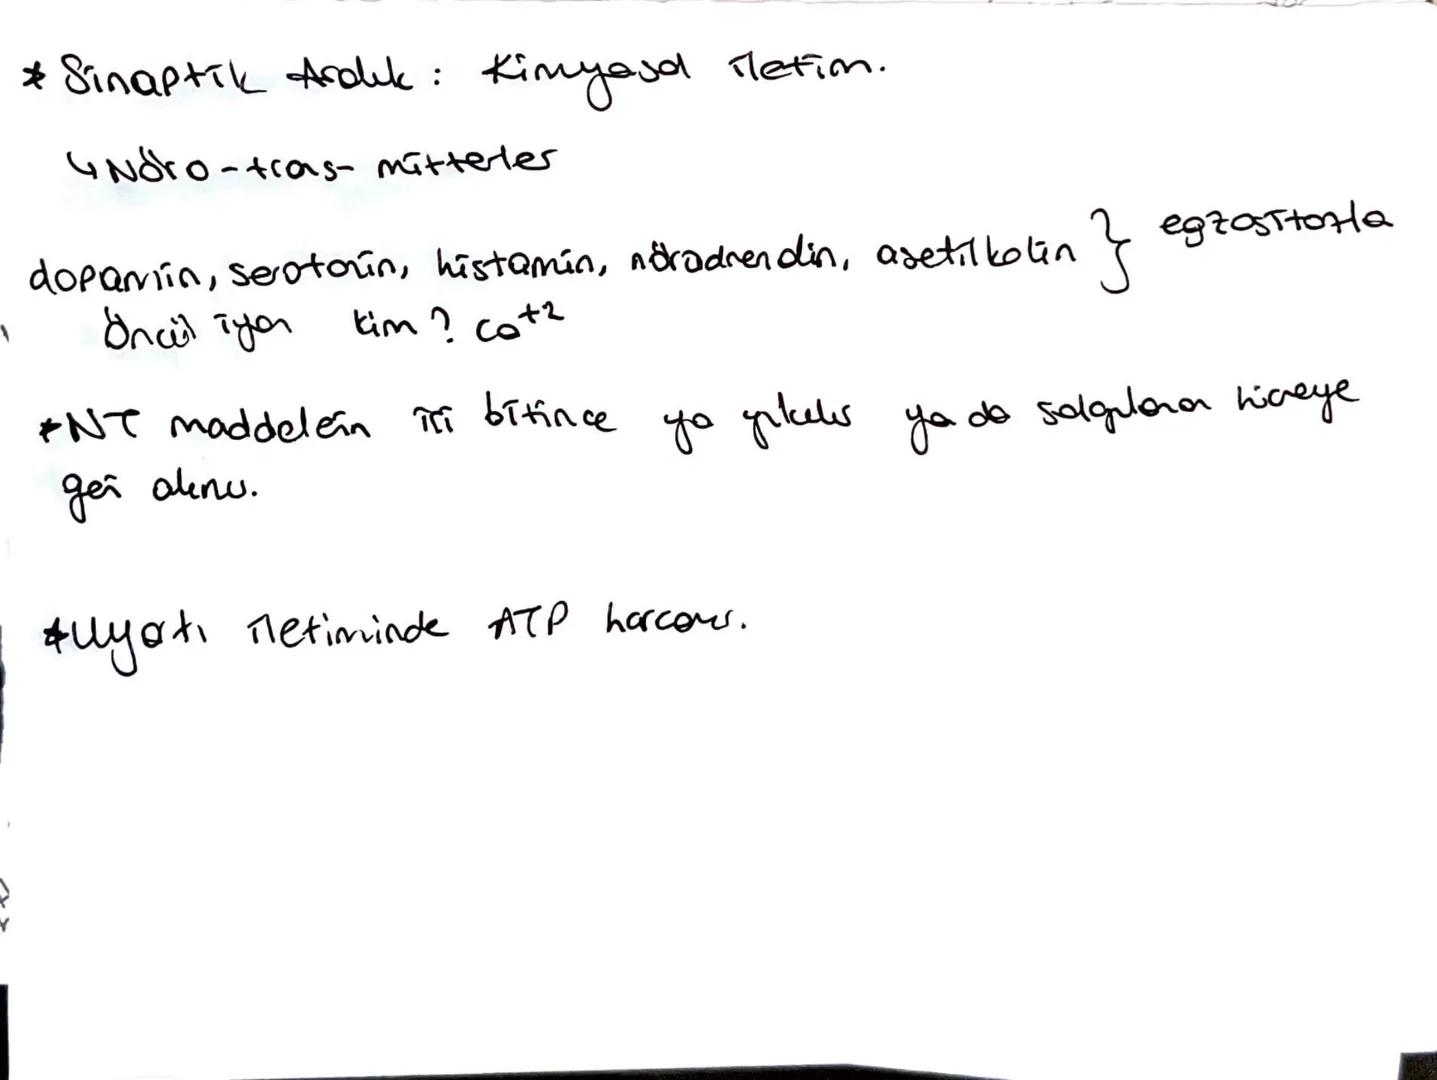 * Sinaptik Aralık : Kimyasal iletim.
↳ Nöro-tras-mitterler
dopamin, serotonin, histamin, nöradrenalin, asetilkolin } egzositozla
Öncül iyon kim? Ca+2
*NT maddelerin işi bitince ya yıkılır ya da salgılanan hücreye
geri alınır.
*Uyartı iletiminde ATP harcanır.